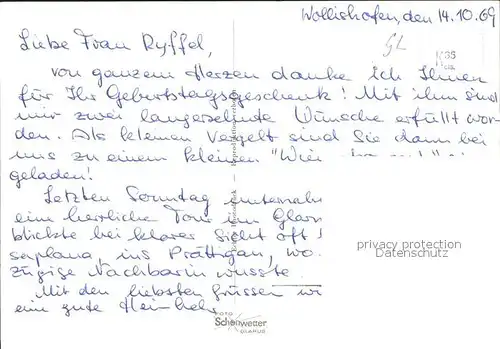 Wollishofen, den 14.10.69
GL
Liebe Frau Ryffel,
von ganzem Herzen danke ich Ihnen
für Ihr Geburtstagsgeschenk! Mit ihm sind
mir zwei langersehnte Wünsche erfüllt wor
den. Als kleinen Vergelt sind Sie dann bei
uns zu einem kleinen "Wie
geladen!
Letzten Sonntag unternah
eine herrliche Tour im Glar
blickte bei klarer Sicht oft
saplana, ins Prättigau, wo
zügige Nachbarin wusste.
Mit den liebsten Grüssen wi
eine gute Heimkehr
privacy protection
Datenschutz
FOTO
Schönwetter
GLARUS